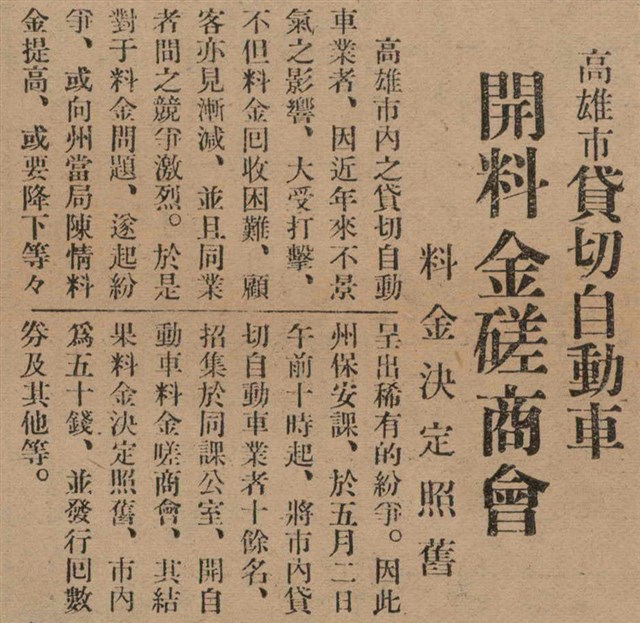 高雄市貸切自動車
開料金磋商會
料金決定照舊
高雄市內之貸切自動
車業者、因近年來不景
氣之影響、大受打擊、
不但料金回收困難、顧
客亦見漸減、並且同業
者間之競爭激烈。於是
對于料金問題、遂起紛
爭、或向州當局陳情料
金提高、或要降下等々
呈出稀有的紛爭。因此
州保安課、於五月二日
午前十時起、將市內貸
切自動車業者十餘名、
招集於同課公室、開自
動車料金嗟商會、其結
果料金決定照舊、市內
爲五十錢、並發行回數
券及其他等。